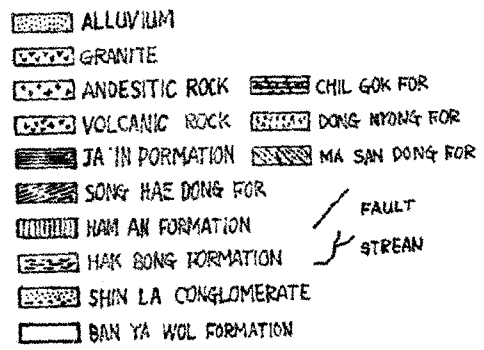 ALLUVIUM
GRANITE
ANDESITIC ROCK
VOLCANIC ROCK
JA'IN PORMATION
SONG HAE DONG FOR
HAM AN FORMATION
HAK BONG FORMATION
SHIN LA CONGLOMERATE
BAN YA WOL FORMATION
CHIL GOK FOR
DONG MYONG FOR
MA SAN DONG FOR
FAULT
STREAN